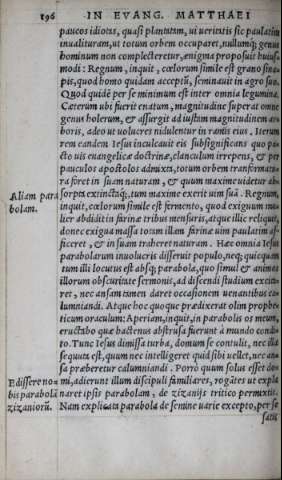 196 IN EVANG. MATTHAEI
paucos idiotas, quasi plantatim, ut ueritatis sic paulatim
inualituram, ut totum orbem occuparet, nullumq; genus
hominum non complecteretur, ænigma proposuit huius-
modi: Regnum, inquit, cœlorum simile est grano sina-
pis, quod homo quidam acceptũ, seminauit in agro suo.
Quod quidẽ per se minimum est inter omnia legumina.
Cæterum ubi fuerit enatum, magnitudine superat omne
genus holerum, & assurgit ad iustam magnitudinem ar-
boris, adeo ut uolucres nidulentur in ramis eius. Iterum
rem eandem Iesus inculcauit eis subsignificans quo pa-
cto uis euangelicæ doctrinæ, clanculum irrepens, & per
pauculos apostolos admixta, totum orbem transformatu-
ra foret in suam naturam, & quum maxime uidetur ab-
Aliam para sorpta extinctaq;, tum maxime exerit uim suã. Regnum,
bolam. inquit, cœlorum simile est fermento, quod exiguum mu-
lier abdidit in farinæ tribus mensuris, atque illic reliquit,
donec exigua massa totam illam farinæ uim paulatim af-
ficeret, & in suam traheret naturam. Hæc omnia Iesus
parabolarum inuolucris disseruit populo, neq; quicquam
tum illi locutus est absq; parabola, quo simul & animos
illorum obscuritate sermonis, ad discendi studium excita-
ret, nec ansam tamen daret occasionem uenantibus ca-
lumniandi. Atque hoc quoque prædixerat olim prophe-
ticum oraculum: Aperiam, inquit, in parabolis os meum,
eructabo quæ hactenus abstrusa fuerunt à mundo condi-
to. Tunc Iesus dimissa turba, domum se contulit, nec illa
sequuta est, quum nec intelligeret quid sibi uellet, nec an-
sa præberetur calumniandi. Porrò quum solus esset do-
Edissere no mi, adierunt illum discipuli familiares, rogãtes ut expla-
bis parabolã naret ipsis parabolam, de zizanijs tritico permixtis.
zizaniorũ. Nam explicata parabola de semine uarie excepto, per se
satis